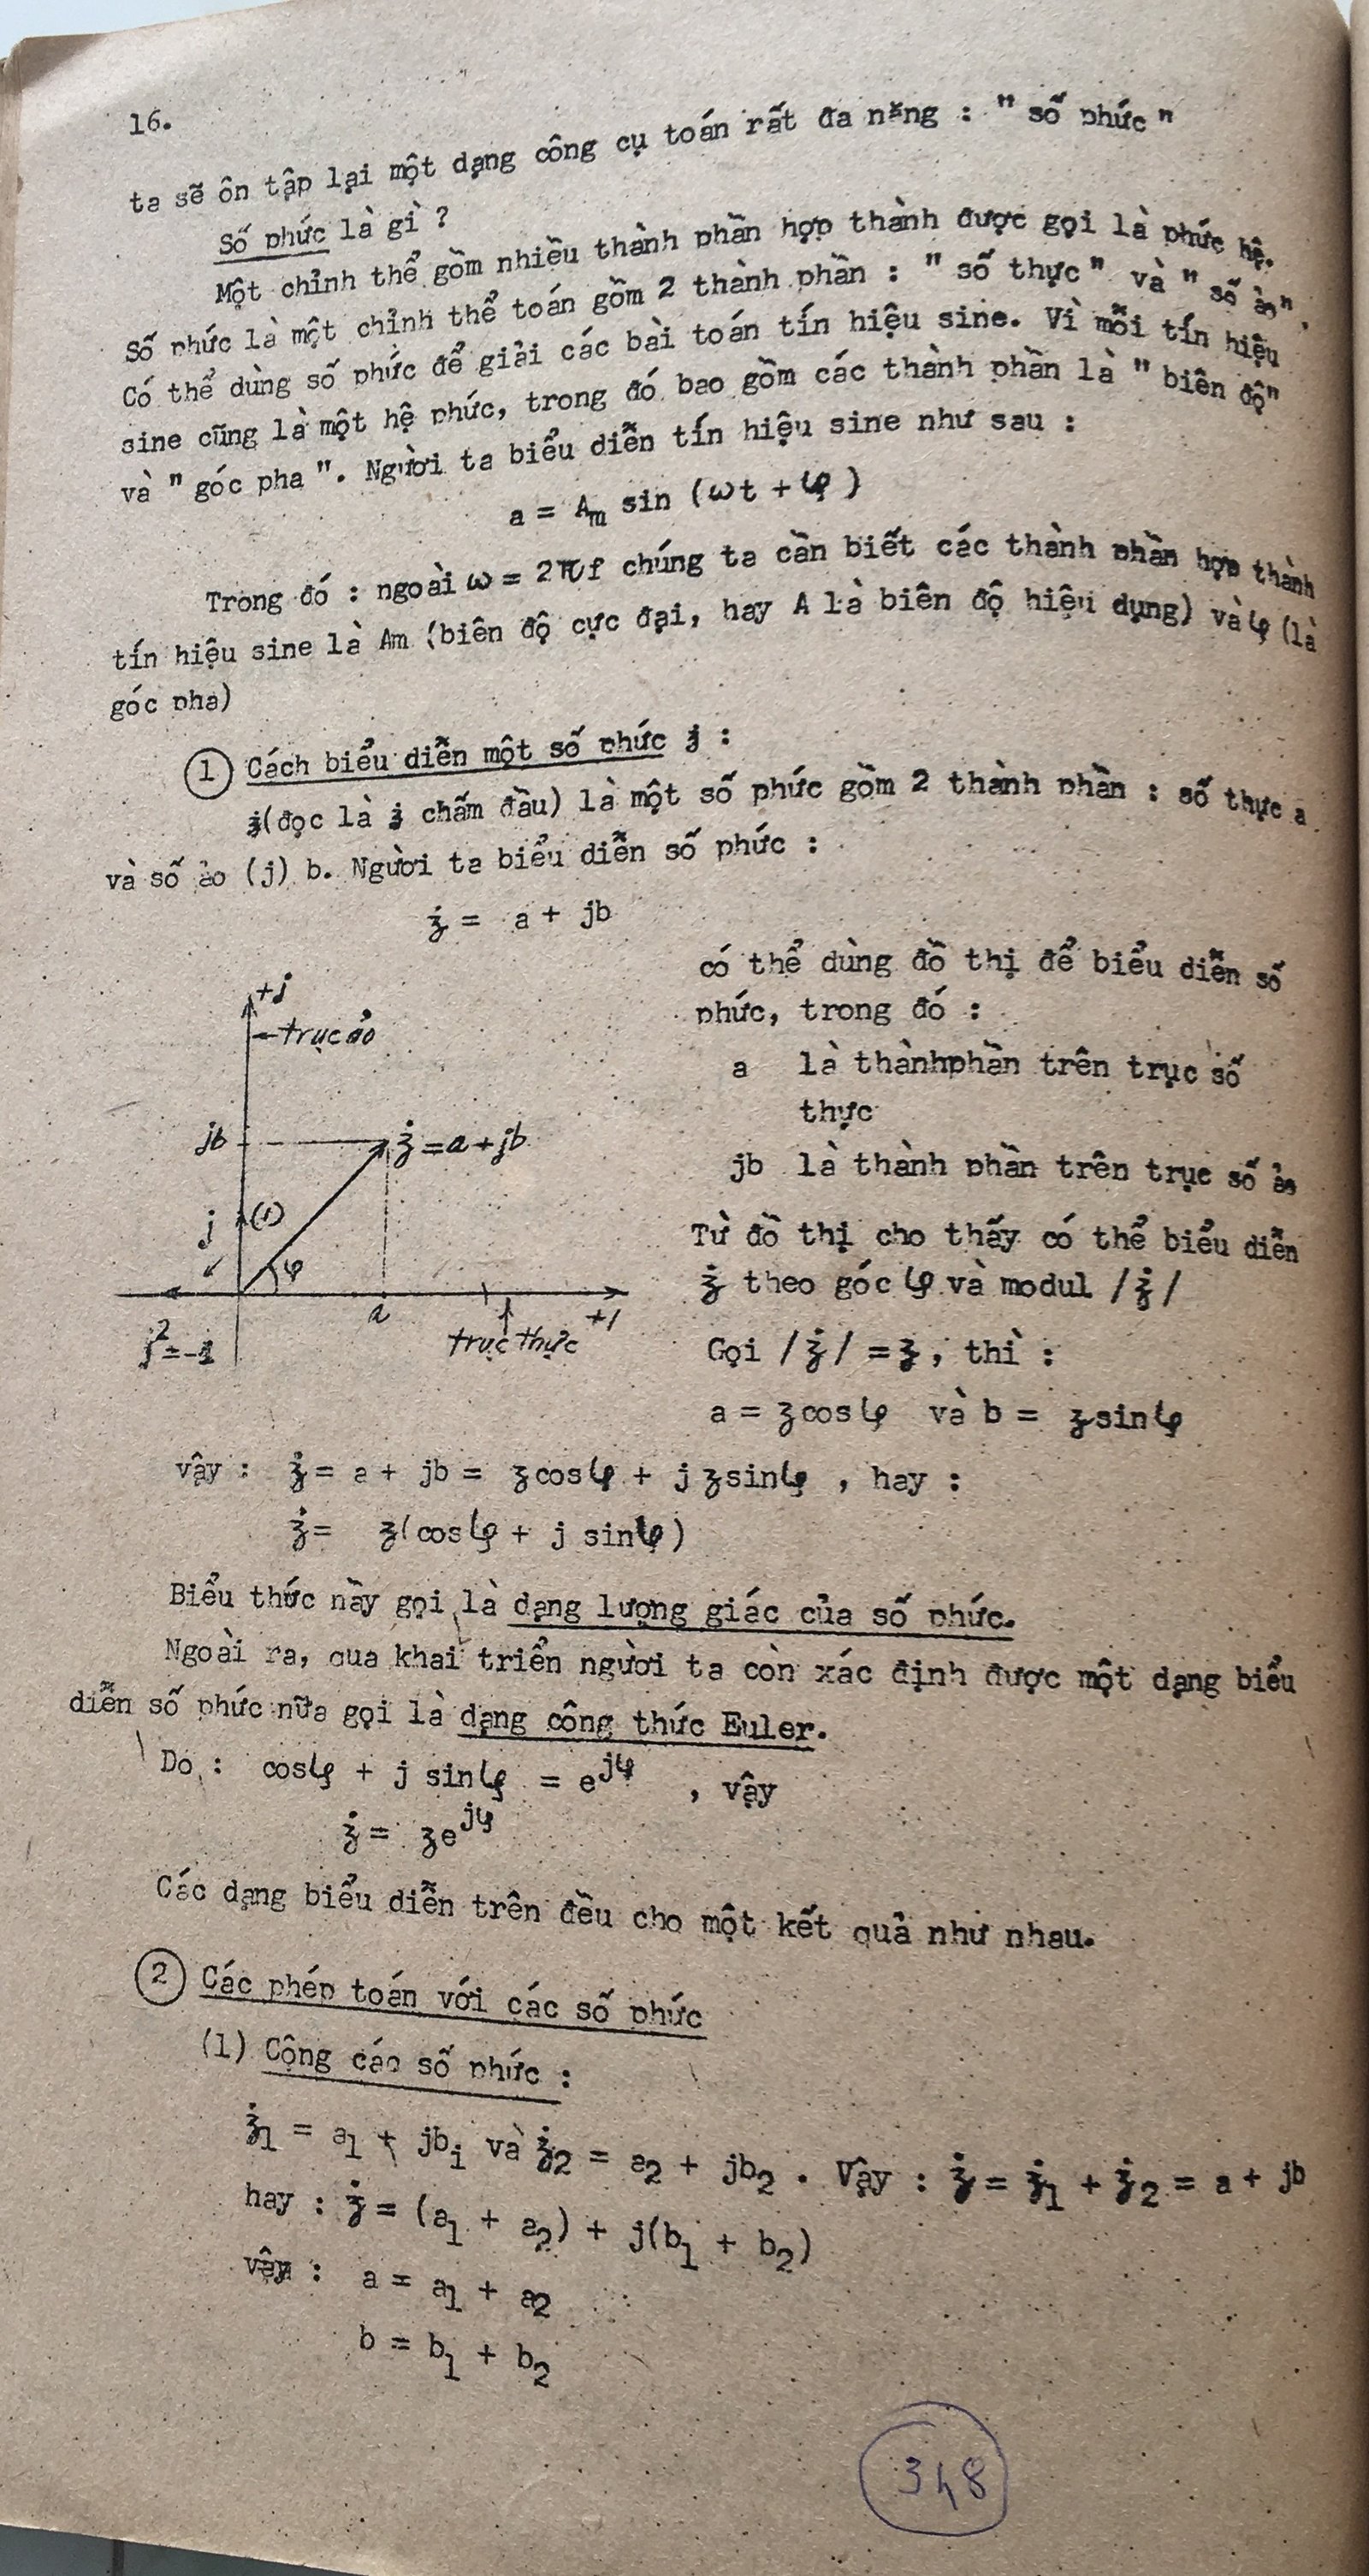 16.
ta sẽ ôn tập lại một dạng công cụ toán rất đa năng : " số phức "
Số phức là gì ?
Một chỉnh thể gồm nhiều thành phần hợp thành được gọi là phức hệ.
Số phức là một chỉnh thể toán gồm 2 thành phần : " số thực " và " số ảo ".
Có thể dùng số phức để giải các bài toán tín hiệu sine. Vì mỗi tín hiệu
sine cũng là một hệ phức, trong đó bao gồm các thành phần là " biên độ"
và " góc pha ". Người ta biểu diễn tín hiệu sine như sau :
a = Am sin (ωt + φ )
Trong đó : ngoài ω = 2πf chúng ta cần biết các thành phần hợp thành
tín hiệu sine là Am (biên độ cực đại, hay A là biên độ hiệu dụng) và φ (là
góc pha)
1 Cách biểu diễn một số phức ż :
ż(đọc là ż chấm đầu) là một số phức gồm 2 thành phần : số thực a
và số ảo (j) b. Người ta biểu diễn số phức :
ż = a + jb
có thể dùng đồ thị để biểu diễn số
phức, trong đó :
a là thànhphần trên trục số
thực
jb là thành phần trên trục số ảo
Từ đồ thị cho thấy có thể biểu diễn
ż theo góc φ và modul /ż/
Gọi /ż/ = z, thì :
a = zcosφ và b = zsinφ
+j
←trục ảo
jb
ż = a + jb
j
(1)
φ
a
+1
trục thực
j² = -1
vậy : ż = a + jb = zcosφ + j zsinφ , hay :
ż = z(cosφ + j sinφ )
Biểu thức nầy gọi là dạng lượng giác của số phức.
Ngoài ra, qua khai triển người ta còn xác định được một dạng biểu
diễn số phức nữa gọi là dạng công thức Euler.
Do : cosφ + j sinφ = e^jφ , vậy
ż = ze^jφ
Các dạng biểu diễn trên đều cho một kết quả như nhau.
2 Các phép toán với các số phức
(1) Cộng các số phức :
ż1 = a1 + jb1 và ż2 = a2 + jb2 . Vậy : ż = ż1 + ż2 = a + jb
hay : ż = (a1 + a2) + j(b1 + b2)
vậy : a = a1 + a2
b = b1 + b2
348